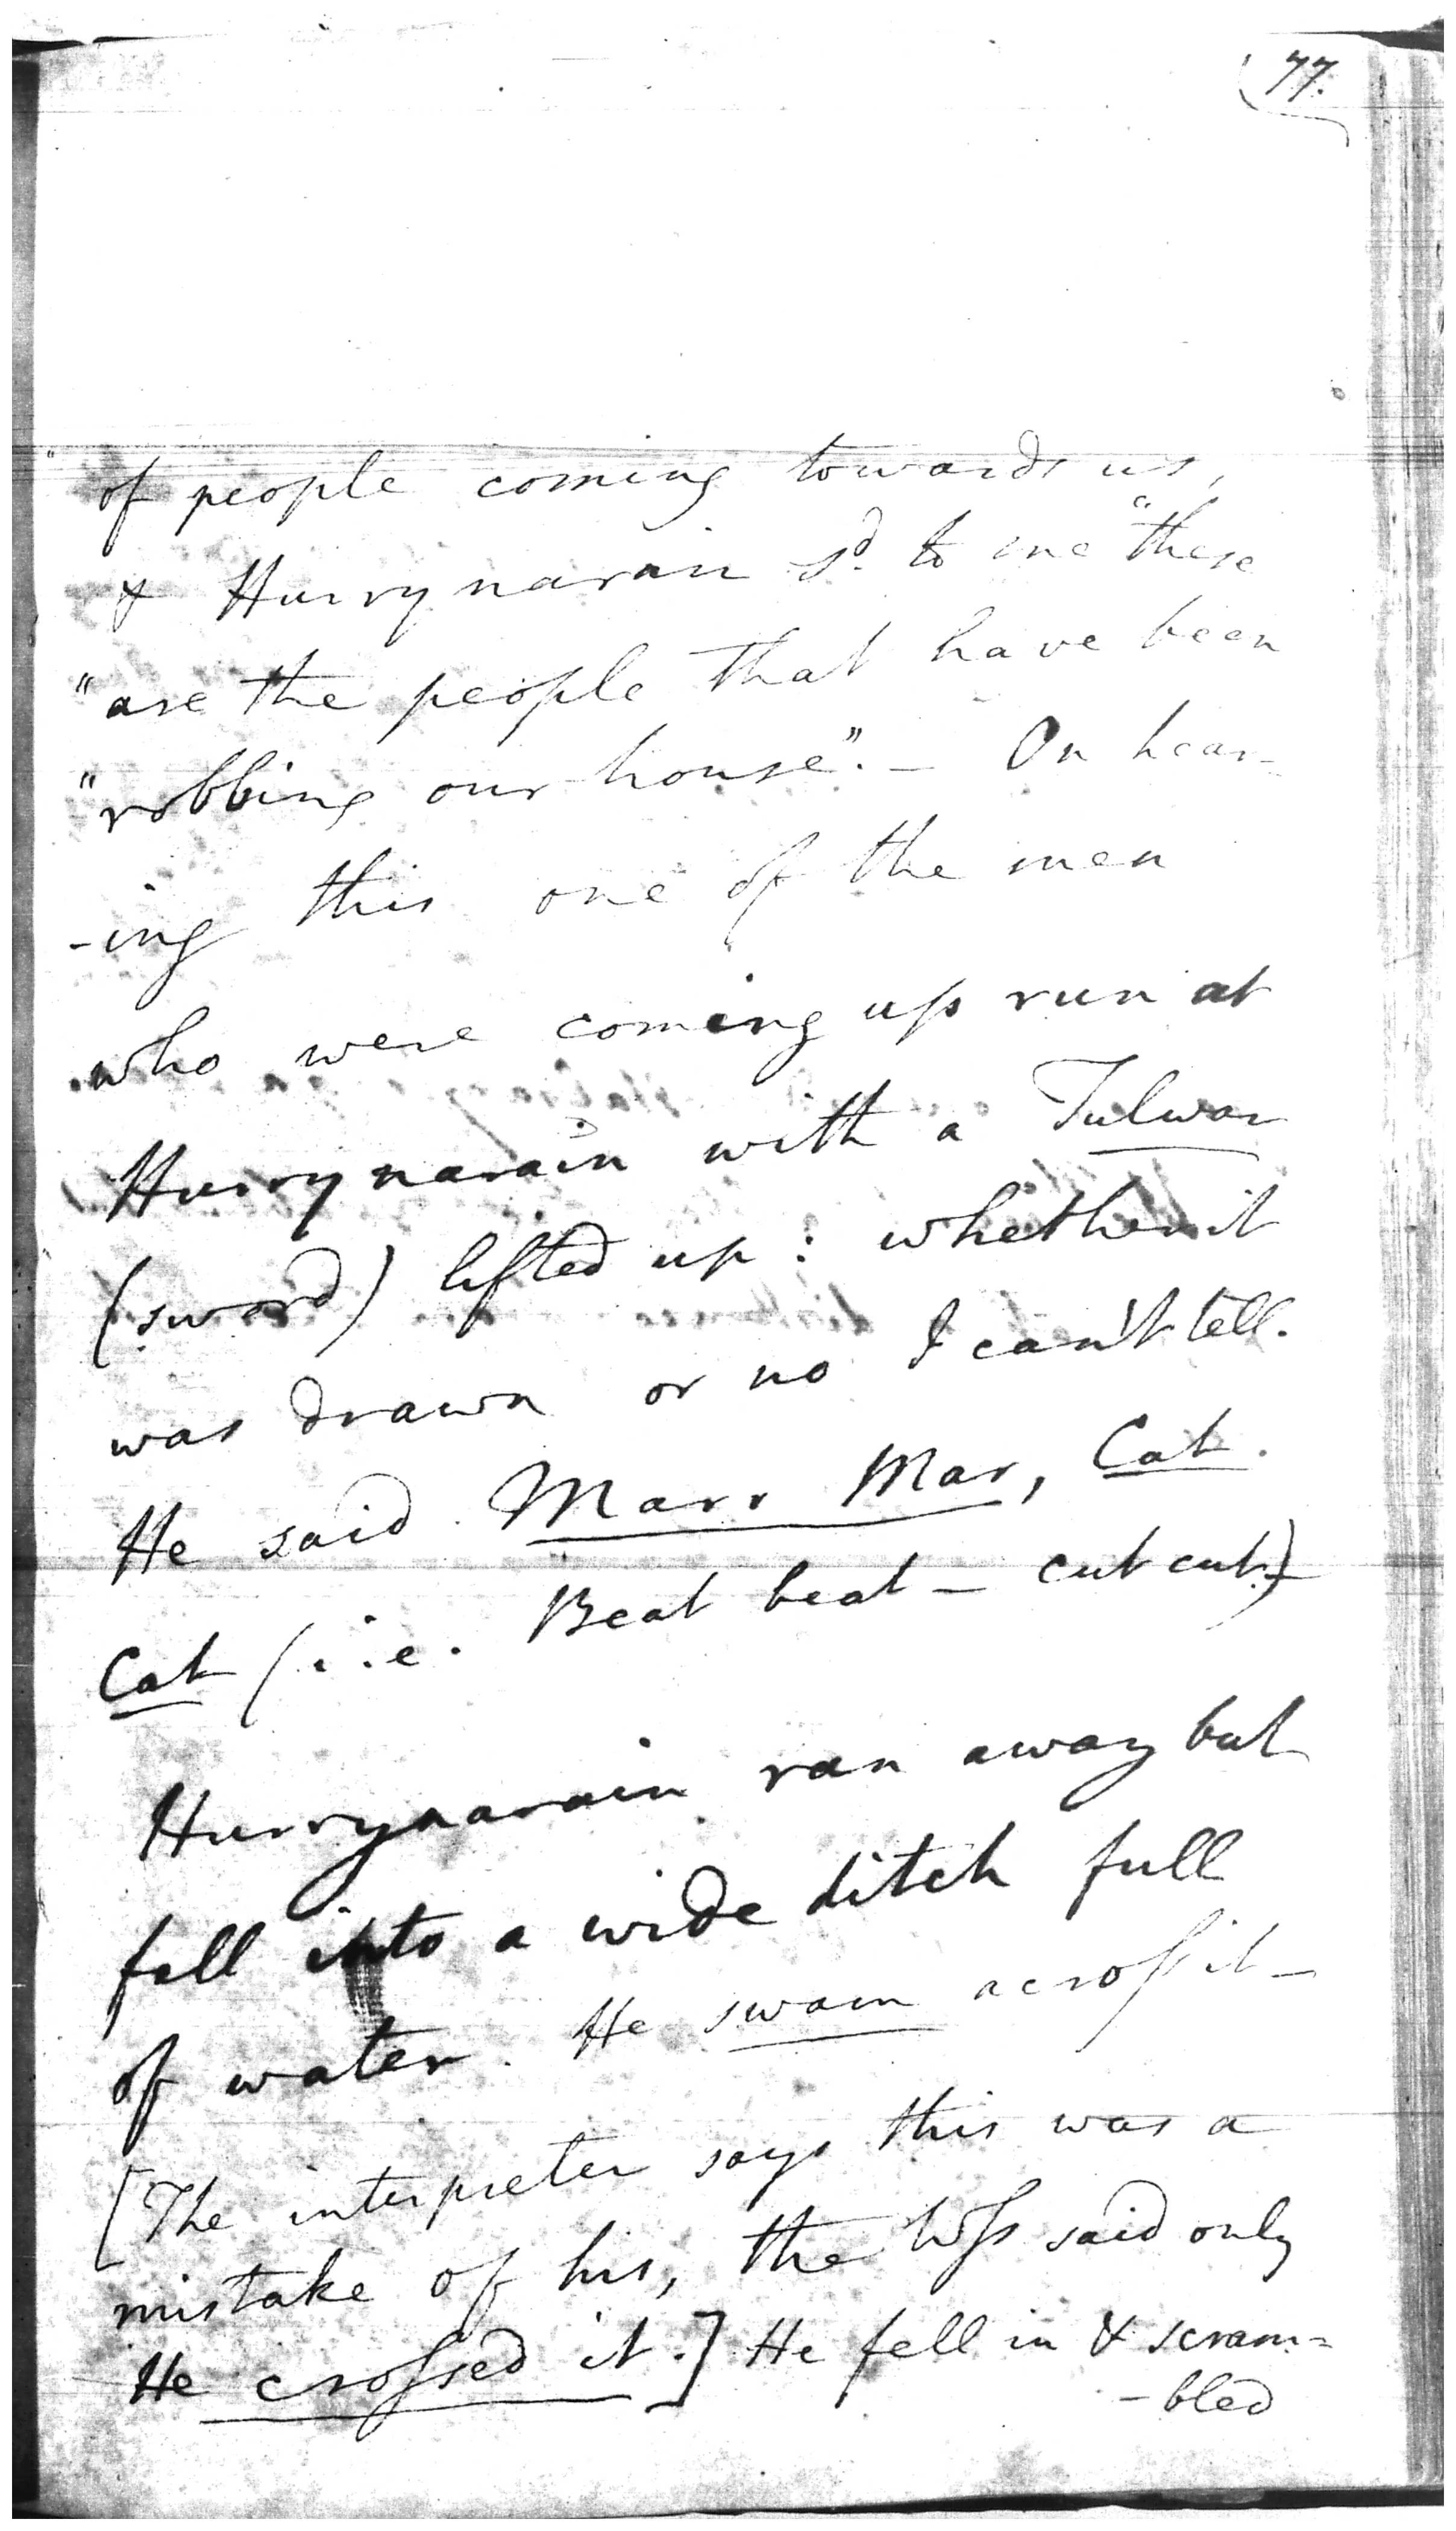 77.
of people coming towards us,
& Hurrynarain sd. to me "these
"are the people that have been
"robbing our house". – On hear-
-ing this one of the men
who were coming up run at
Hurrynarain with a Tulwar
(sword) lifted up: whether it
was drawn or no I can't tell.
He said Marr Mar, Cat.
Cat (i.e. Beat beat – cut cut.)
Hurrynarain ran away but
fell into a wide ditch full
of water. He swam across it –
[The interpreter says this was a
mistake of his, the Wss said only
He crossed it.] He fell in & scram=
-bled